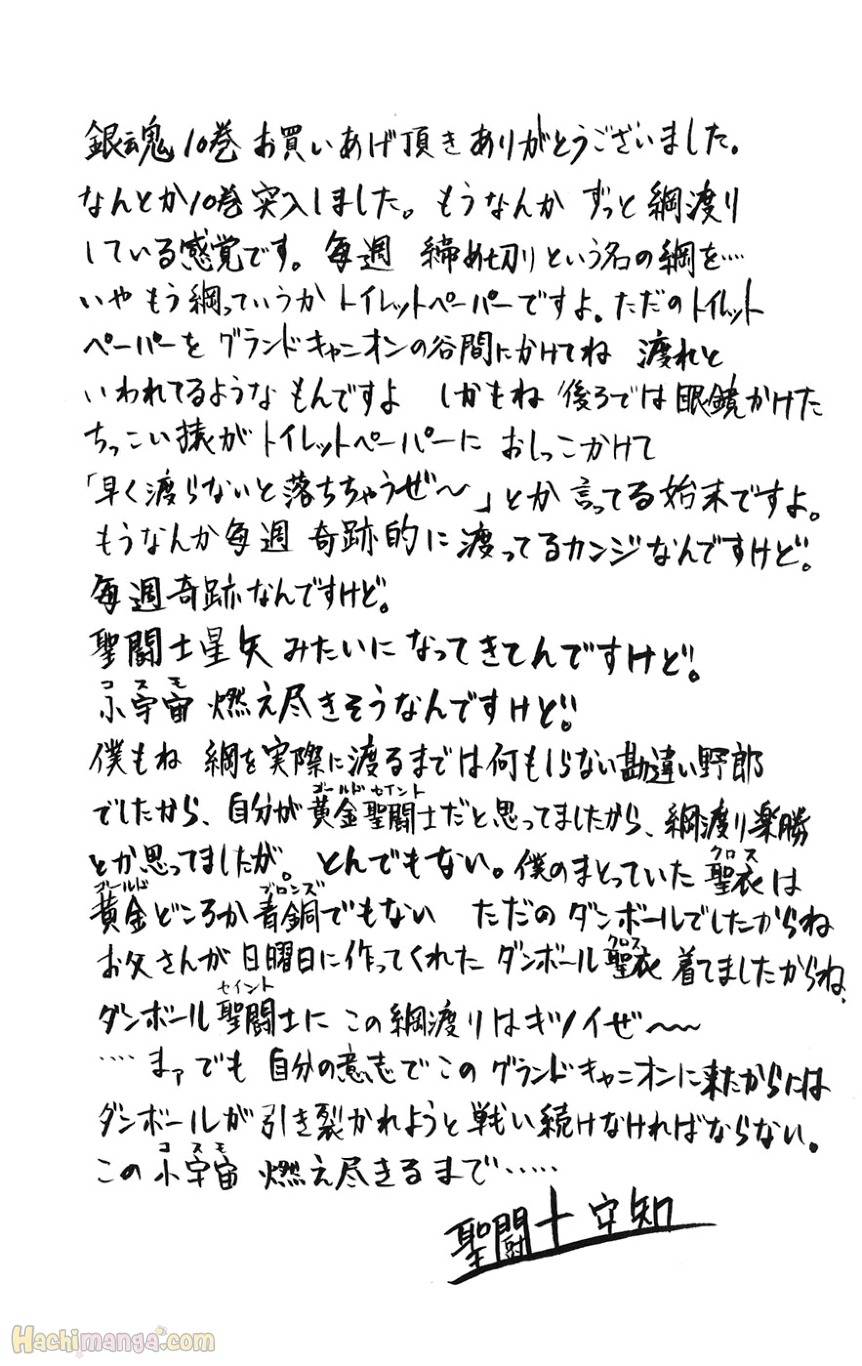 銀魂10巻 お買いあげ頂きありがとうございました。
なんとか10巻突入しました。もうなんか ずっと綱渡り
している感覚です。毎週 締め切りという名の綱を…
いや もう綱っていうか トイレットペーパーですよ。ただのトイレット
ペーパーを グランドキャニオンの谷間にかけてね 渡れと
いわれてるような もんですよ しかもね 後ろでは眼鏡かけた
ちっこい猿がトイレットペーパーに おしっこかけて
「早く渡らないと落ちちゃうぜ〜」とか言ってる始末ですよ。
もうなんか毎週 奇跡的に渡ってるカンジなんですけど。
毎週奇跡なんですけど。
聖闘士星矢みたいになってきてんですけど。
コスモ
小宇宙 燃え尽きそうなんですけど!!
僕もね 綱を実際に渡るまでは何もしらない勘違い野郎
ゴールドセイント
でしたから、自分が黄金聖闘士だと思ってましたから、綱渡り楽勝
クロス
とか思ってましたが。とんでもない。僕のまとっていた聖衣は
ゴールド ブロンズ
黄金どころか青銅でもない ただのダンボールでしたからね
クロス
お父さんが日曜日に作ってくれた ダンボール聖衣 着てましたからね、
セイント
ダンボール聖闘士に この綱渡りはキツイぜ〜〜
…… まァでも 自分の意志でこのグランドキャニオンに来たからには
ダンボールが引き裂かれようと戦い続けなければならない。
コスモ
この小宇宙 燃え尽きるまで……
聖闘士 空知
Hachimanga.com